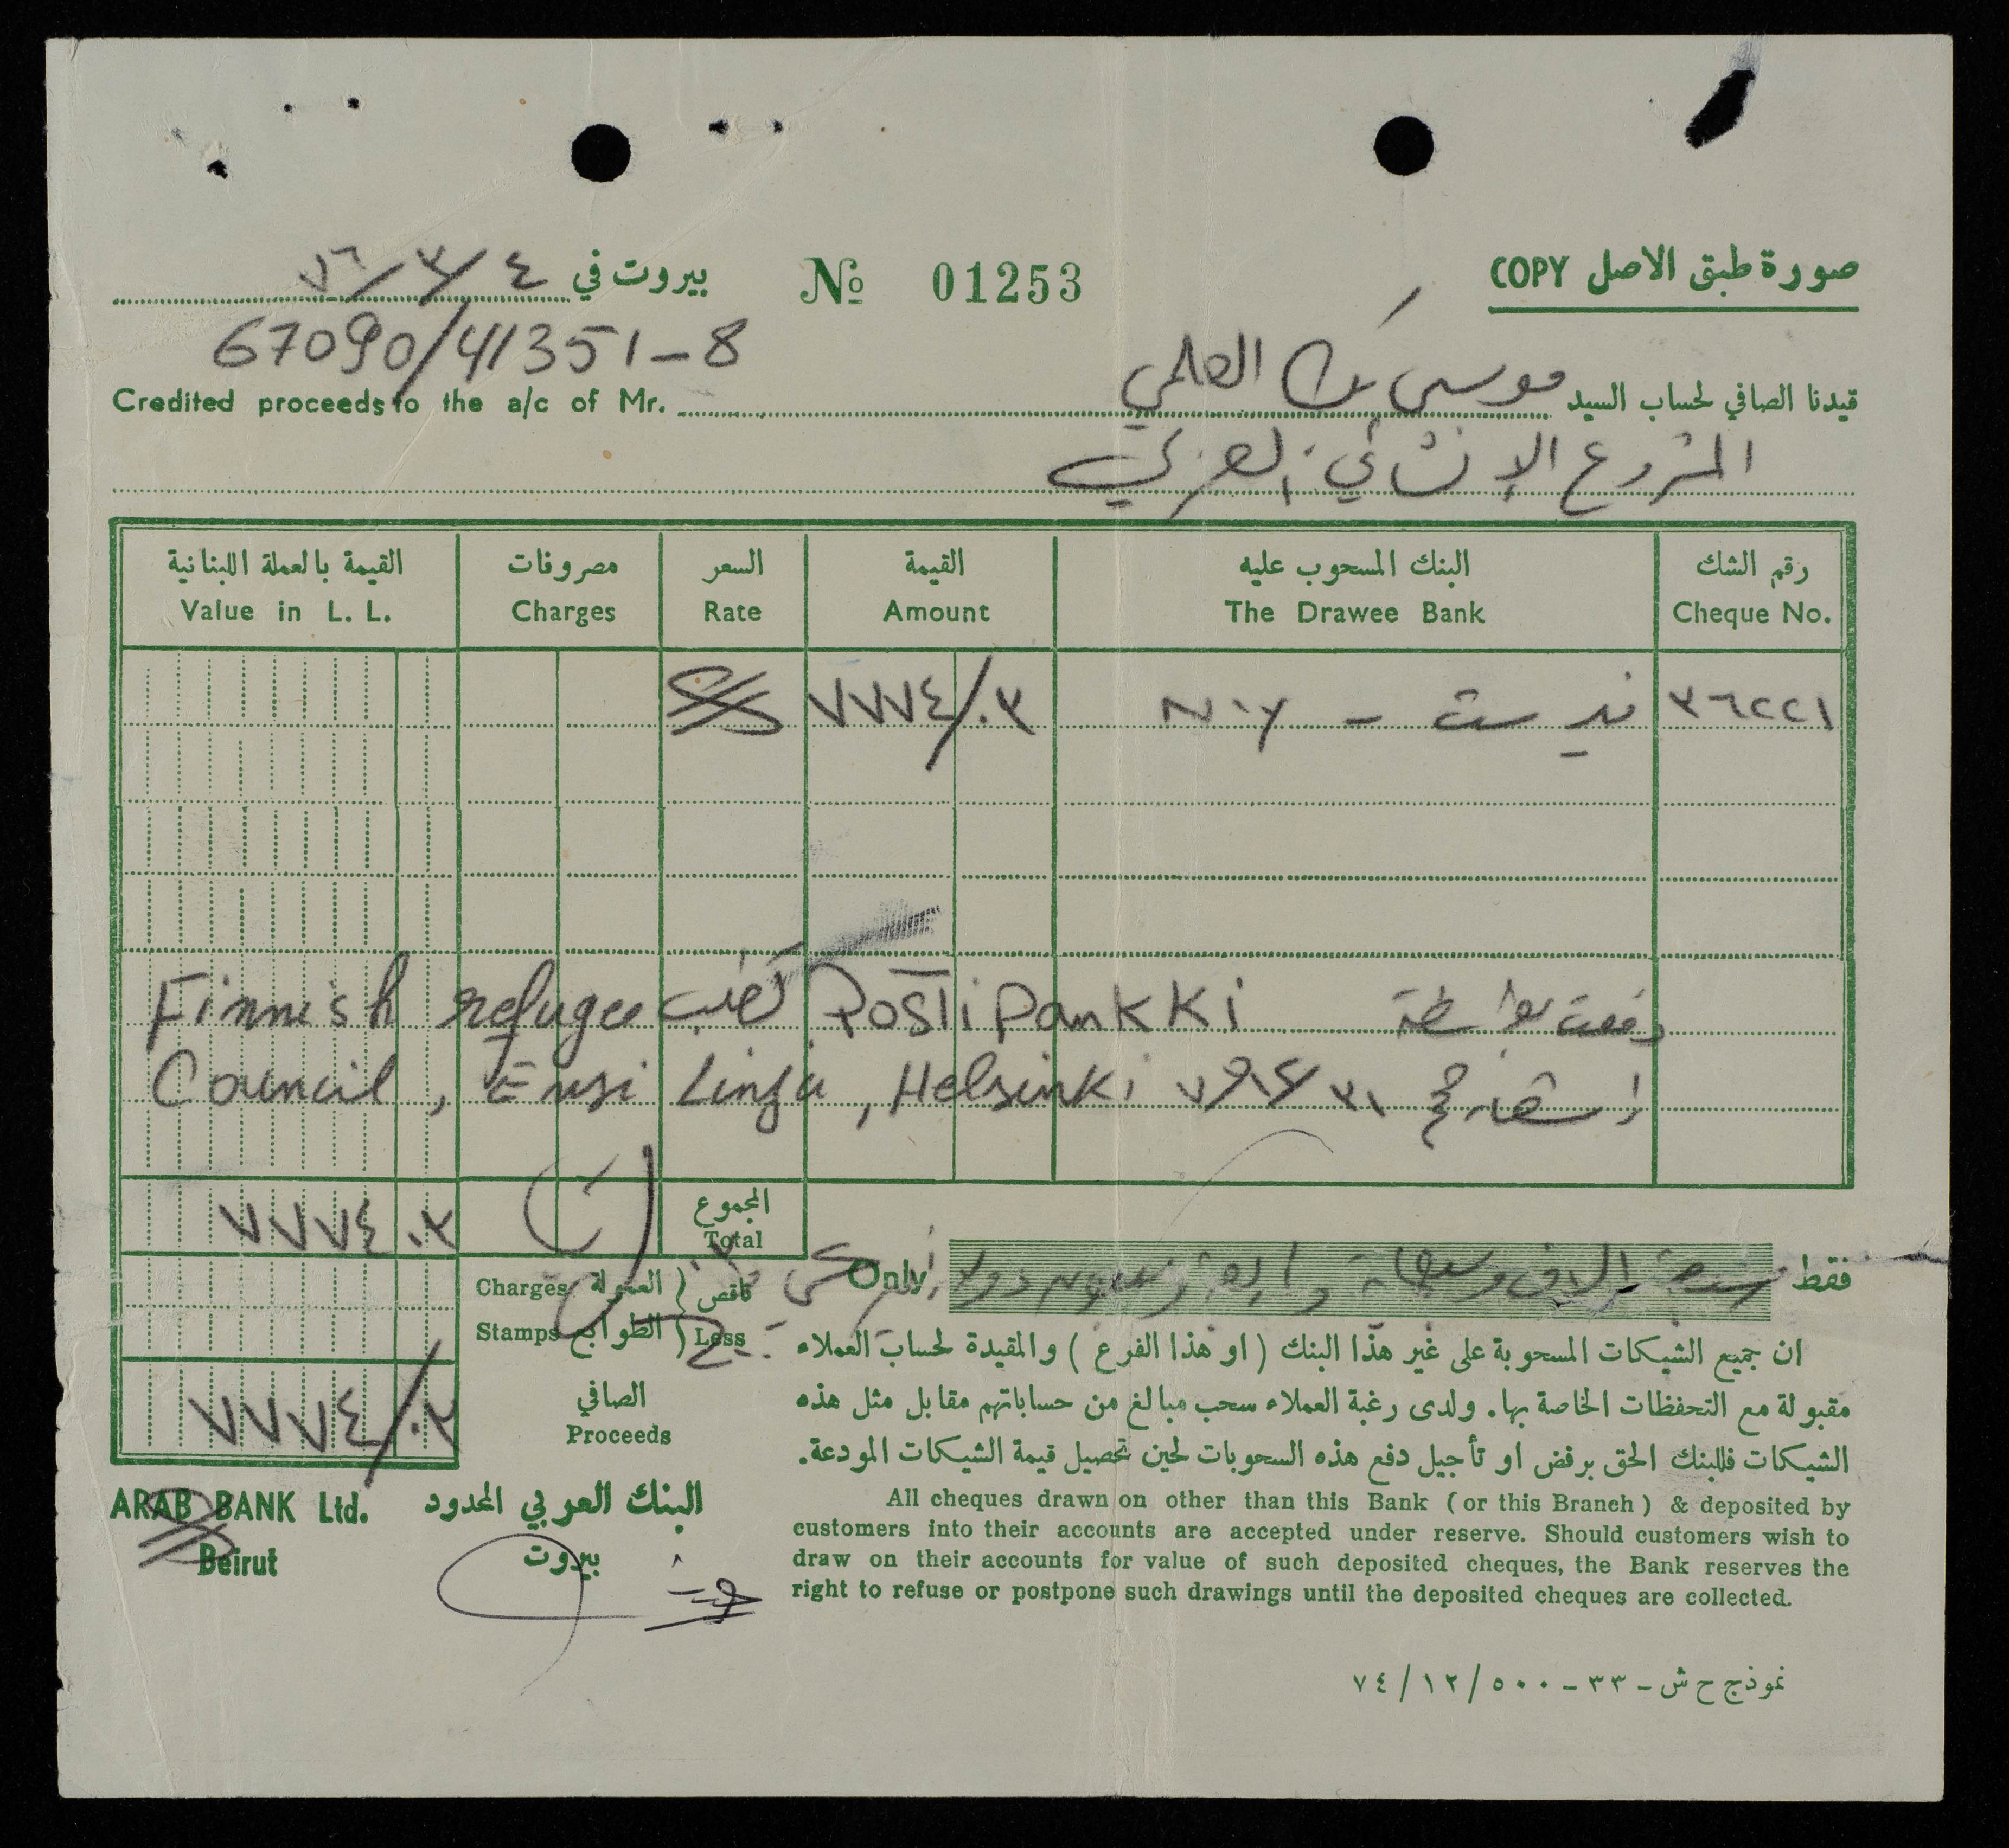 صورة طبق الاصل COPY
№ 01253
بيروت في ٤/٣/٧٦
67090/41351-8
قيدنا الصافي لحساب السيد موسى بك العلمي
Credited proceeds to the a/c of Mr.
المشروع الإنشائي العربي
رقم الشك البنك المسحوب عليه القيمة السعر مصروفات القيمة بالعملة اللبنانية
Cheque No. The Drawee Bank Amount Rate Charges Value in L. L.
٣٦٢٢١ ٧٧٧٤/٠٣
دفعت بواسطة Postipankki Finnish refugee
Council, Ensi Linja, Helsinki
المجموع
Total
٧٧٧٤ ٠٣
فقط سبعة الاف وسبعماية واربعة وسبعون دولار Only
ناقص ( العمولة Charges
Less ( الطوابع Stamps
الصافي
Proceeds
٧٧٧٤/٠٣
ان جميع الشيكات المسحوبة على غير هذا البنك (او هذا الفرع) والمقيدة لحساب العملاء
مقبولة مع التحفظات الخاصة بها. ولدى رغبة العملاء سحب مبالغ من حساباتهم مقابل مثل هذه
الشيكات فللبنك الحق برفض او تأجيل دفع هذه السحوبات لحين تحصيل قيمة الشيكات المودعة.
All cheques drawn on other than this Bank (or this Branch) & deposited by
customers into their accounts are accepted under reserve. Should customers wish to
draw on their accounts for value of such deposited cheques, the Bank reserves the
right to refuse or postpone such drawings until the deposited cheques are collected.
البنك العربي المحدود ARAB BANK Ltd.
بيروت Beirut
نموذج ح ش - ٣٣ - ٥٠٠/١٢/٧٤